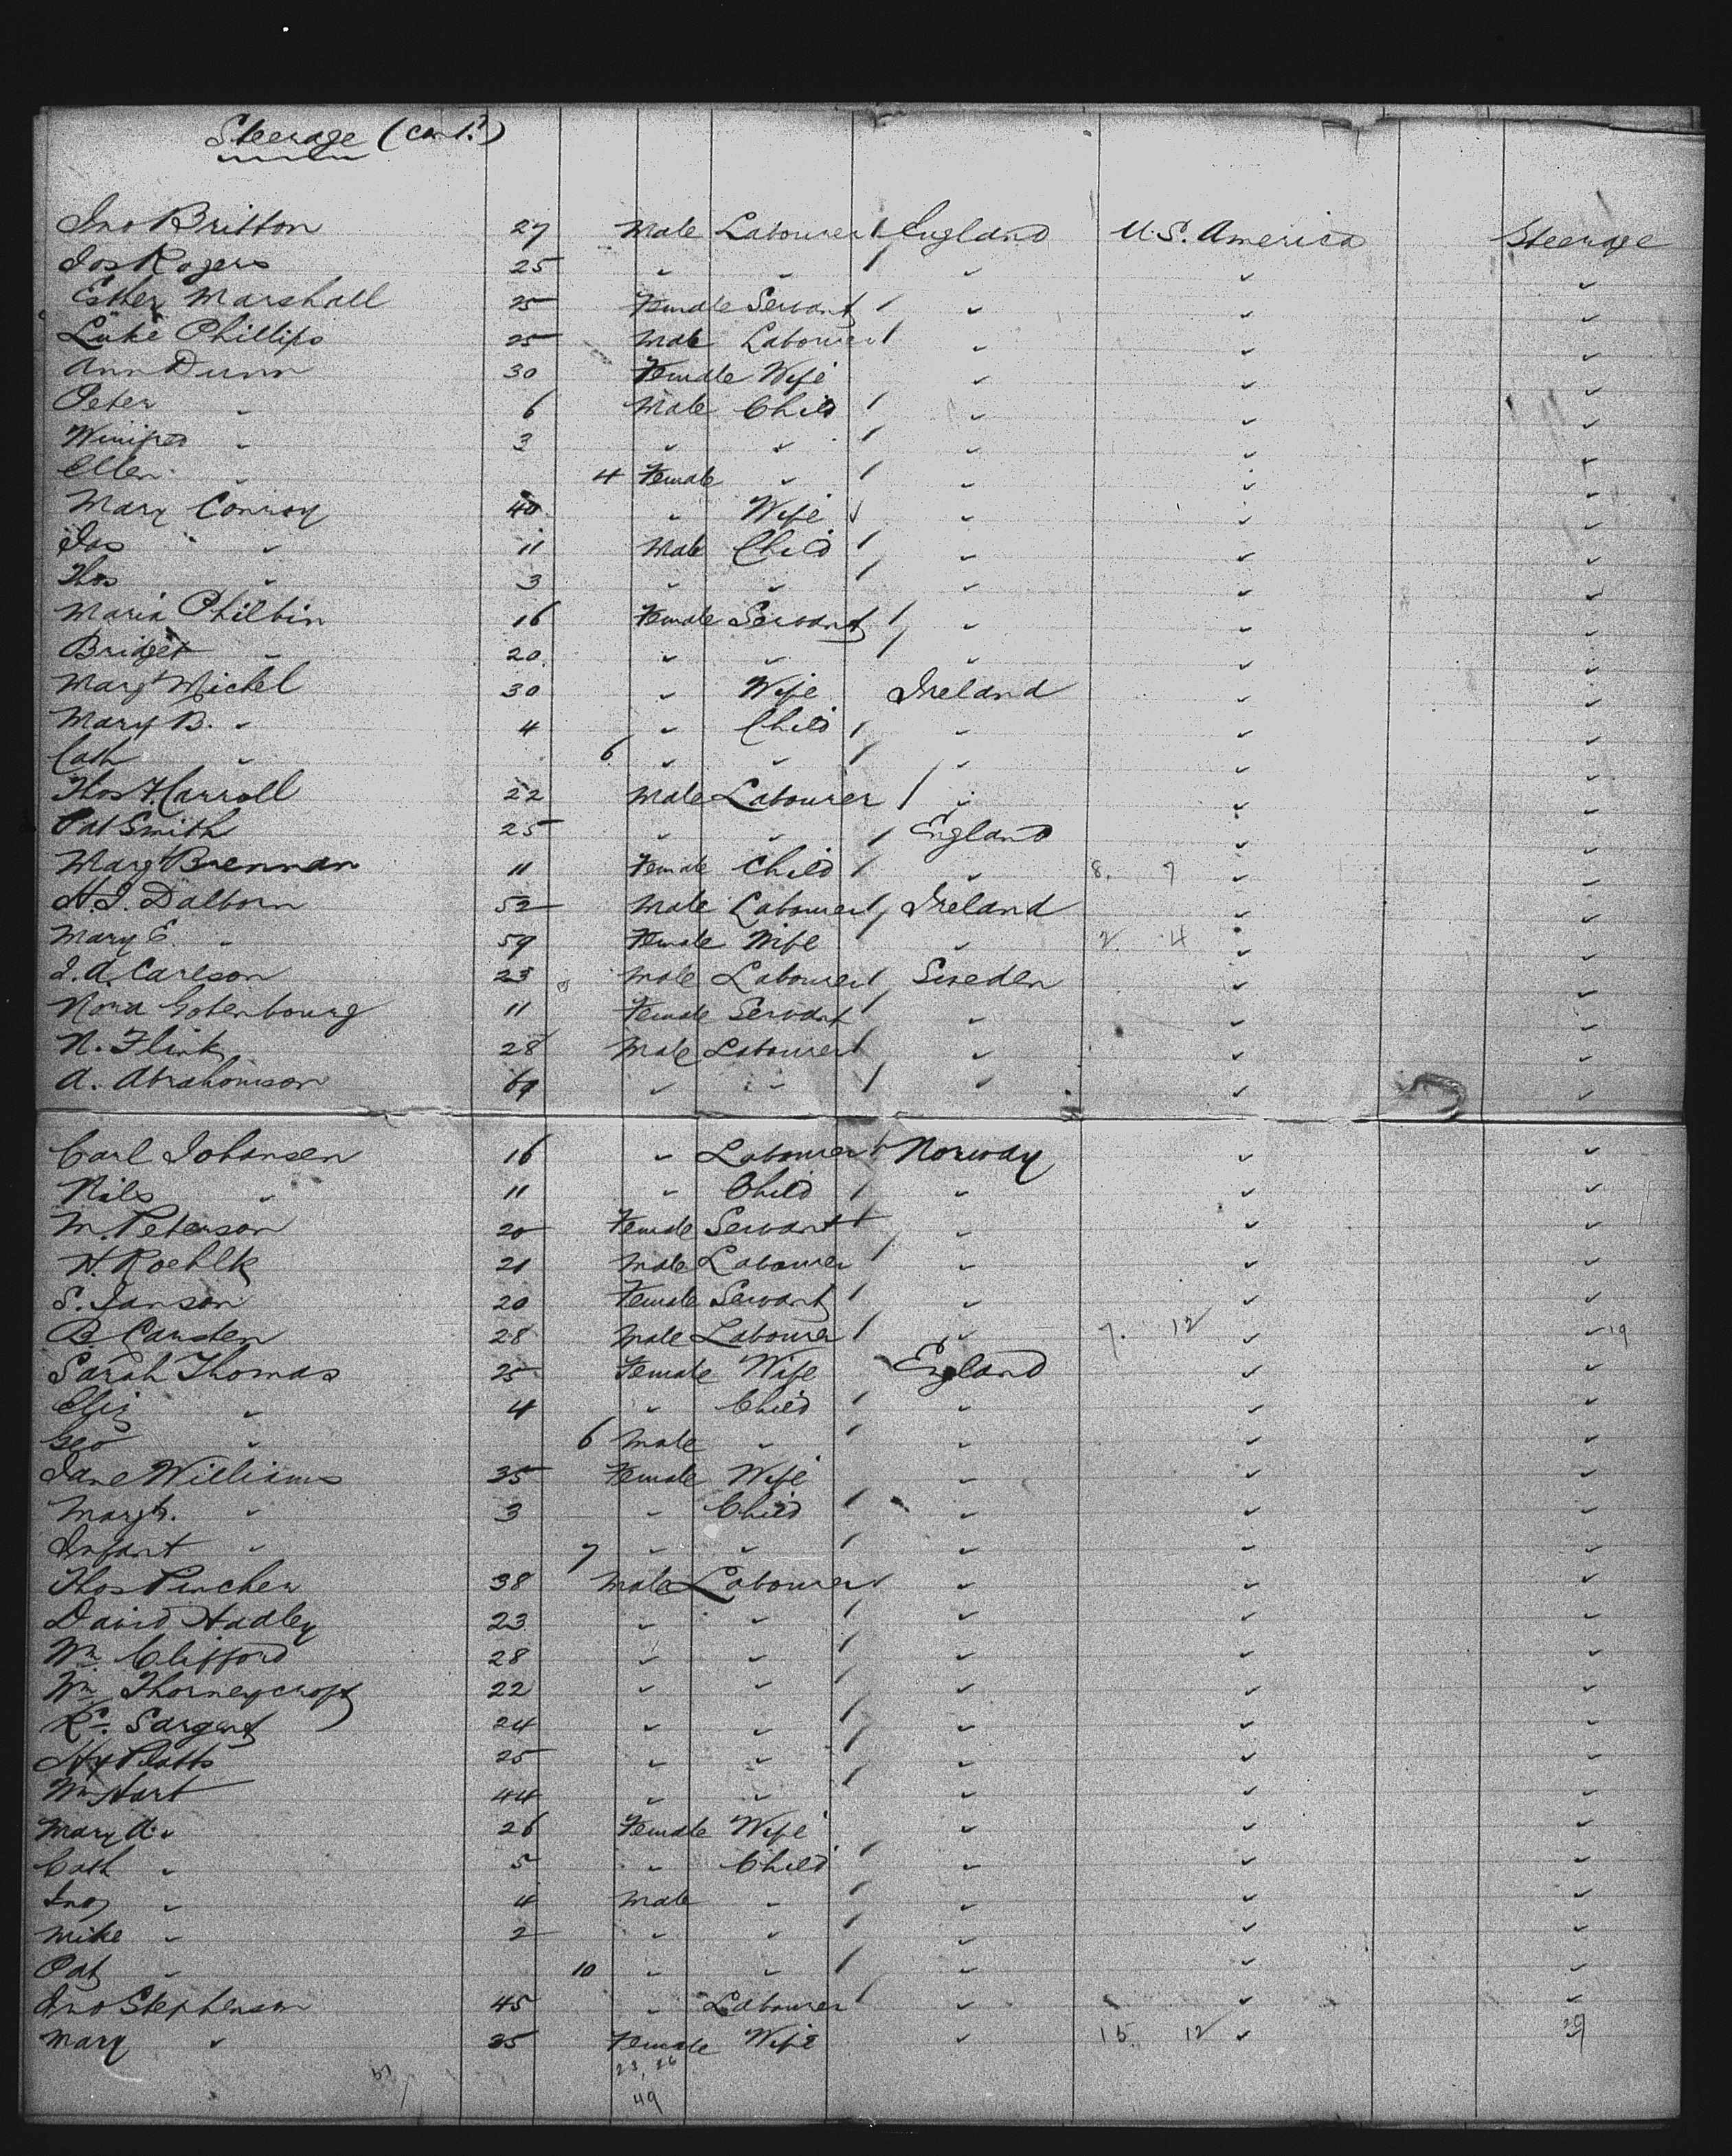 Steerage (Cont.d)
Jno Britton 27 Male Labourer / England U.S. America Steerage
Jos Rogers 25 " " / " " "
Esther Marshall 25 Female Servant / " " "
Luke Phillips 25 Male Labourer / " " "
Ann Dunn 30 Female Wife " " "
Peter " 6 Male Child / " " "
Winifred " 3 " " / " " "
Ellen " 4 Female " / " " "
Mary Conroy 40 " Wife / " " "
Jas " 11 Male Child / " " "
Thos " 3 " " / " " "
Maria Philbin 16 Female Servant / " " "
Bridget " 20 " " / " " "
Margt Michel 30 " Wife Ireland " "
Mary B. " 4 " Child / " " "
Cath " 6 " " / " " "
Thos Harroll 22 Male Labourer / " " "
Pat Smith 25 " " / England " "
Margt Brennan 11 Female Child / " 8. 7 " "
H.J. Dalborn 52 Male Labourer / Ireland " "
Mary E. " 59 Female Wife " 2 4 " "
J.A. Carlson 23 Male Labourer / Sweden " "
Nora Gotenbourg 11 Female Servant / " " "
N. Flink 28 Male Labourer / " " "
A. Abrahomson 69 " " / " " "
Carl Johansen 16 " Labourer / Norway " "
Nils " 11 " Child / " " "
M. Peterson 20 Female Servant / " " "
H. Roehlk 21 Male Labourer / " " "
S. Janson 20 Female Servant / " " "
B. Carsten 28 Male Labourer / " 7. 12 " " 19
Sarah Thomas 25 Female Wife England " "
Eliz " 4 " Child / " " "
Geo " 6 Male " / " " "
Jane Williams 35 Female Wife " " "
Margt. " 3 " Child / " " "
Infant " 7 " " / " " "
Thos Pincher 38 Male Labourer / " " "
David Hadley 23 " " / " " "
Wm Clifford 28 " " / " " "
Wm Thorneycroft 22 " " / " " "
Sargent 24 " " / " " "
Hy Platts 25 " " / " " "
Wm Hart 44 " " / " " "
Mary A. " 26 Female Wife " " "
Cath " 5 " Child / " " "
Jno " 4 Male " / " " "
Mike " 2 " " / " " "
Pat " 10 " " / " " "
Jno Stephenson 45 " Labourer / " " "
Mary " 35 Female Wife " 15. 12 " "
23, 26
49